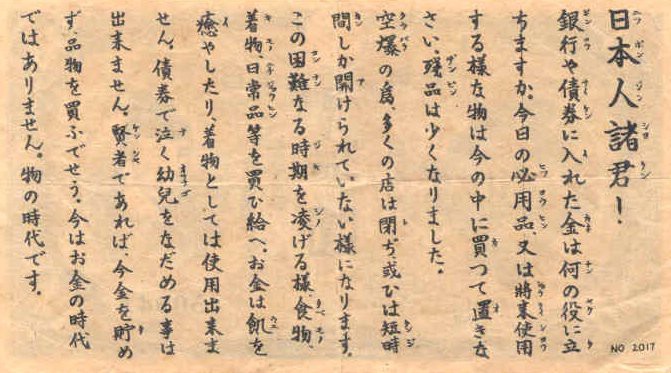 日本人諸君!
銀行や債券に入れた金は何の役に立
ちますか。今日の必用品、又は將來使用
する様な物は今の中に買つて置きな
さい。殘品は少くなりました。
空爆の爲、多くの店は閉ぢ或ひは短時
間しか開けられていない様になります。
この困難なる時期を凌げる様食物、
着物、日常品等を買ひ給へ。お金は飢を
癒やしたり、着物としては使用出來ま
せん。債券で泣く幼兒をなだめる事は
出來ません。賢者であれば、今金を貯め
ず品物を買ふでせう。今はお金の時代
ではありません。物の時代です。
NO 2017